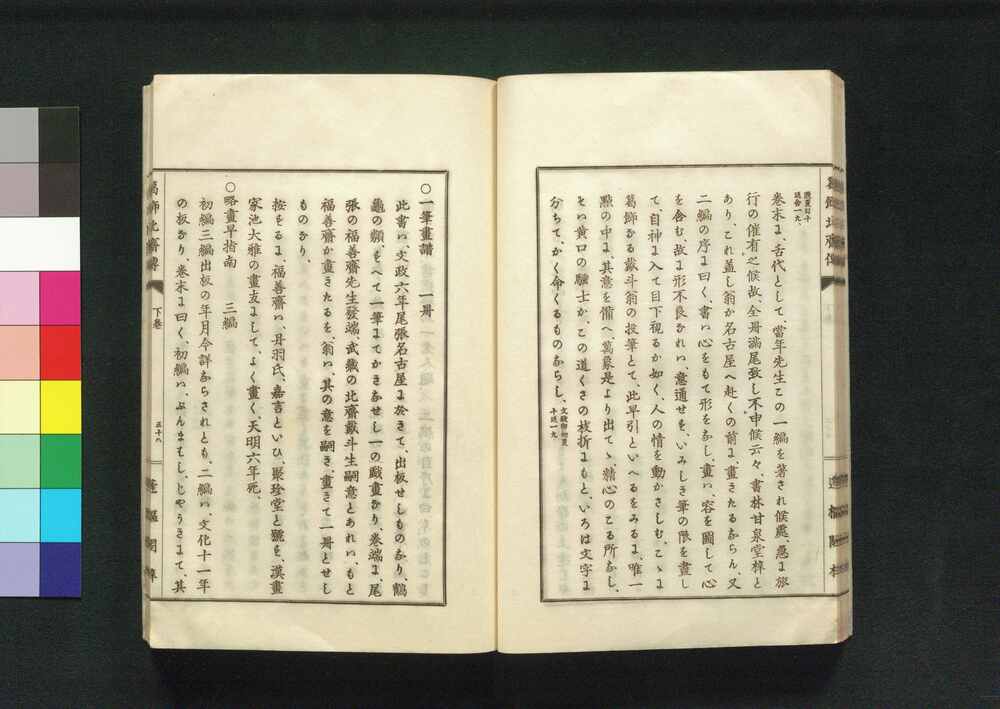 葛飾北齋傳
卷末に、舌代として、當年先生この一編を著され候處、急に旅
行の催有之候故、全册滿尾致し不申候云々、書林甘泉堂梓と
あり、これ蓋し翁か名古屋へ赴くの前に、畫きたるならん、又
二編の序に曰く、書ハ心をもて形をなし、畫ハ容を圖して心
を含む故に形不良されハ、意通せを、いみしき筆の限を盡し
て、自神に入て目下視るか如く、人の情を動かさしむ、こゝに
葛飾なる戴斗翁の投筆とて、此早引といへるをみるに、唯一
點の中に、其意を備へ萬象是より出てゝ、精心のこる所なし、
そハ黄口の騷士か、この道くさの枝折にもと、いろは文字に
分ちて、かく命くるものならし、
下卷
五十六
蓬樞閣梓
○一筆畫譜　一册
此書ハ、文政六年尾張名古屋に於きて、出板せしものなり、鶴
龜の類、そへて一筆にてかきなせし一の戲畫なり、卷端に、尾
張の福善齋先生發端、武藏の北齋戴斗生嗣意とあれハ、もと
福善齋か畫きたるを、翁ハ、其の意を嗣き、畫きて一册とせし
ものなり、
按をるに、福善齋ハ、丹羽氏、嘉言といひ、聚珍堂と號を、漢畫
家池大雅の畫友にして、よく畫く、天明六年死、
○略畫早指南　三編
初編三編出板の年月今詳ならされとも、二編ハ、文化十一年
の板なり、卷末に曰く、初編ハ、ぶんまもし、じやうきにて、其